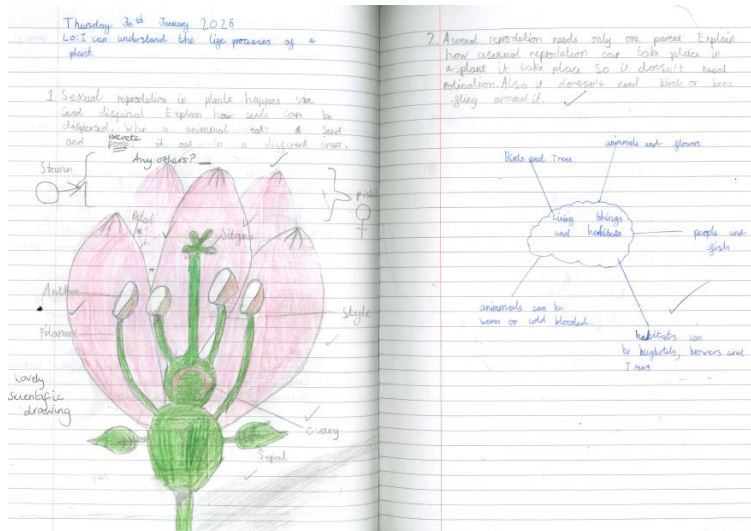 Thursday 30th January 2025
LO: I can understand the life processes of a
plant.
1. Sexual reprodution in plants happens via
Seed dispersal Explain how seeds can be
dispersed. When a animmal eats a seed
and excrete it out in a different area.
Any others?
Stamen
Pistil
Petal
Stigma
Anther
Style
Filament
Lovely
scientific
drawing
Ovary
Sepal
2. Asexual reprodation needs only one parent Explain
how asexual reprodation can take place in
a plant it take place So it doesn't need
polination. Also it doesn't need birds or bees
fling around it.
animmals and flowers
Birds and Trees
Living things
and habitats
people and
fish
animmals can be
warm or cold blooded.
habitats can
be bughotels, browers and
Trees